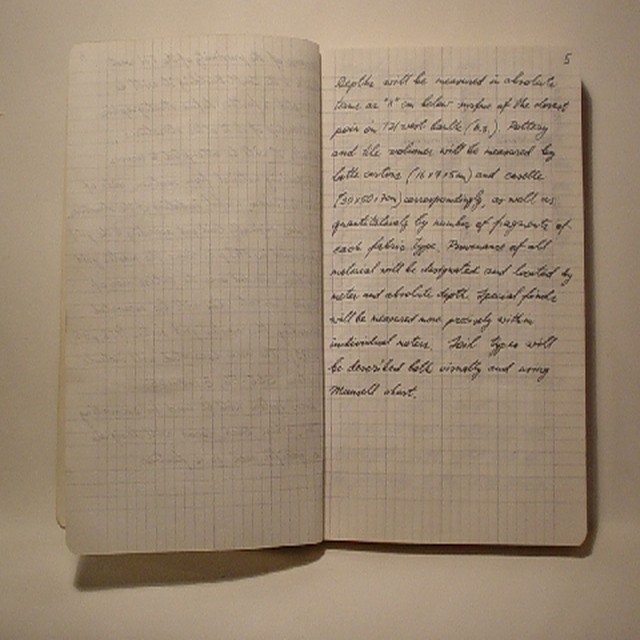 5
Depths will be measured in absolute
terms as "X" cm below surface of the closest
point on T21 west baulk (b.s.). Pottery
and tile volumes will be measured by
latte cartons (16x9x5cm) and casette
(30x50x7cm) correspondingly, as well as
quantitatively by number of fragments of
each fabric type. Provenance of all
material will be designated and located by
meter and absolute depth. Special finds
will be measured more precisely within
individual meters. Soil types will
be described both visually and using
Munsell chart.